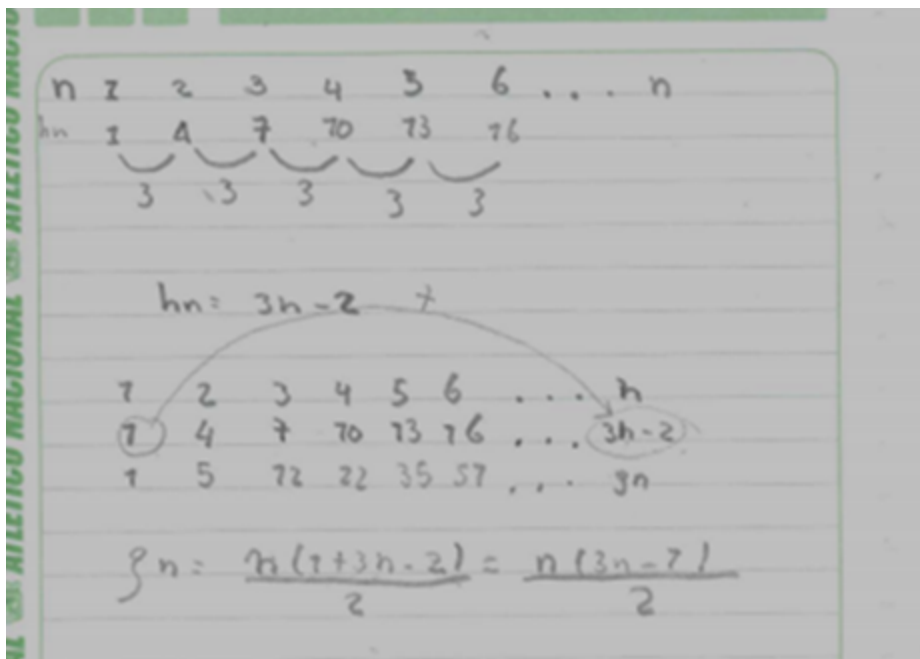 ATLETICO NACIONAL ATLETICO NACIO
n 1 2 3 4 5 6 ... n
hn 1 4 7 10 13 16
3 3 3 3 3
hn = 3n - 2 +
1 2 3 4 5 6 ... n
1 4 7 10 13 16 ... 3n - 2
1 5 12 22 35 51 ... gn
gn = n(1+3n-2)/2 = n(3n-1)/2